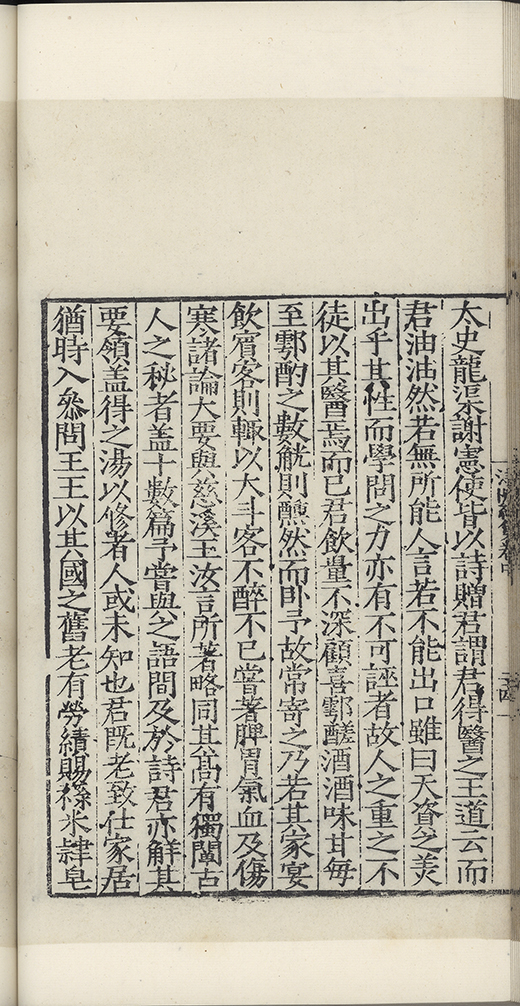 太史龍渠謝憲使皆以詩贈君謂君得醫之王道云而
君油油然若無所能人言若不能出口雖曰天資之美
出乎其性而學問之力亦有不可誣者故人之重之不
徒以其醫焉而已君飲量不深顧喜酃醝酒酒味甘每
至酃酌之數觥則醺然而卧予故常寄之乃若其家宴
飲賓客則輙以大斗客不醉不已嘗著脾胃氣血及傷
寒諸論大要與慈溪王汝言所著略同其髙有獨闡古
人之秘者盖十數篇予嘗與之語間及於詩君亦解其
要領盖得之湯以修者人或未知也君既老致仕家居
猶時入叅問王王以其國之舊老有勞績賜祿米隸皂